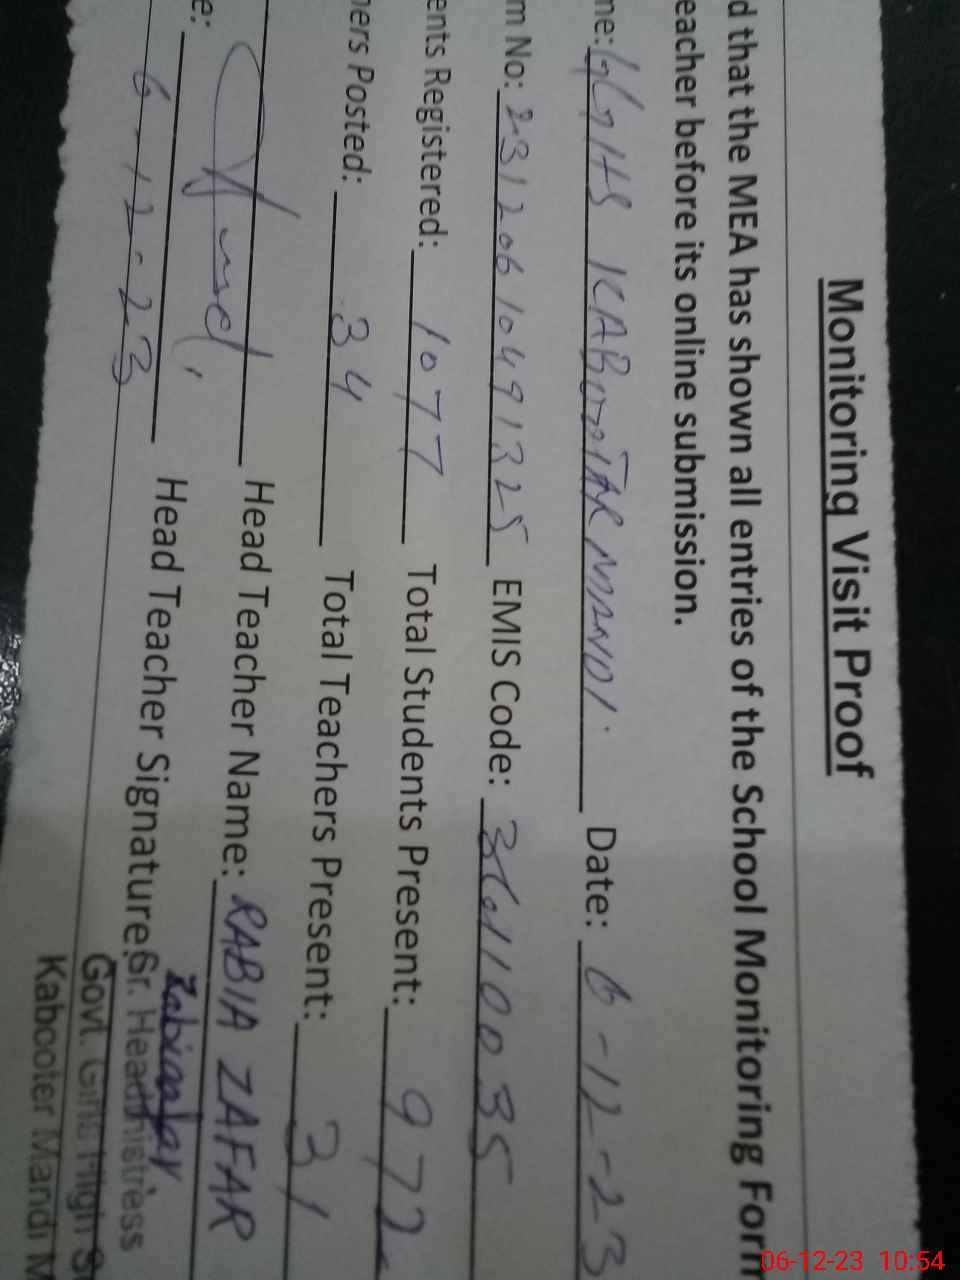 Monitoring Visit Proof
d that the MEA has shown all entries of the School Monitoring Form
eacher before its online submission.
me: GGHS KABOOTAR MANDI. Date: 6-12-23
m No: 23120610491325 EMIS Code: 36110035
ents Registered: 1077 Total Students Present: 972
ners Posted: 34 Total Teachers Present: 31
Head Teacher Name: RABIA ZAFAR
e: 6-12-23 Head Teacher Signature:
Sr. Headmistress
Govt. Girls High S
Kabooter Mandi M
06-12-23 10:54